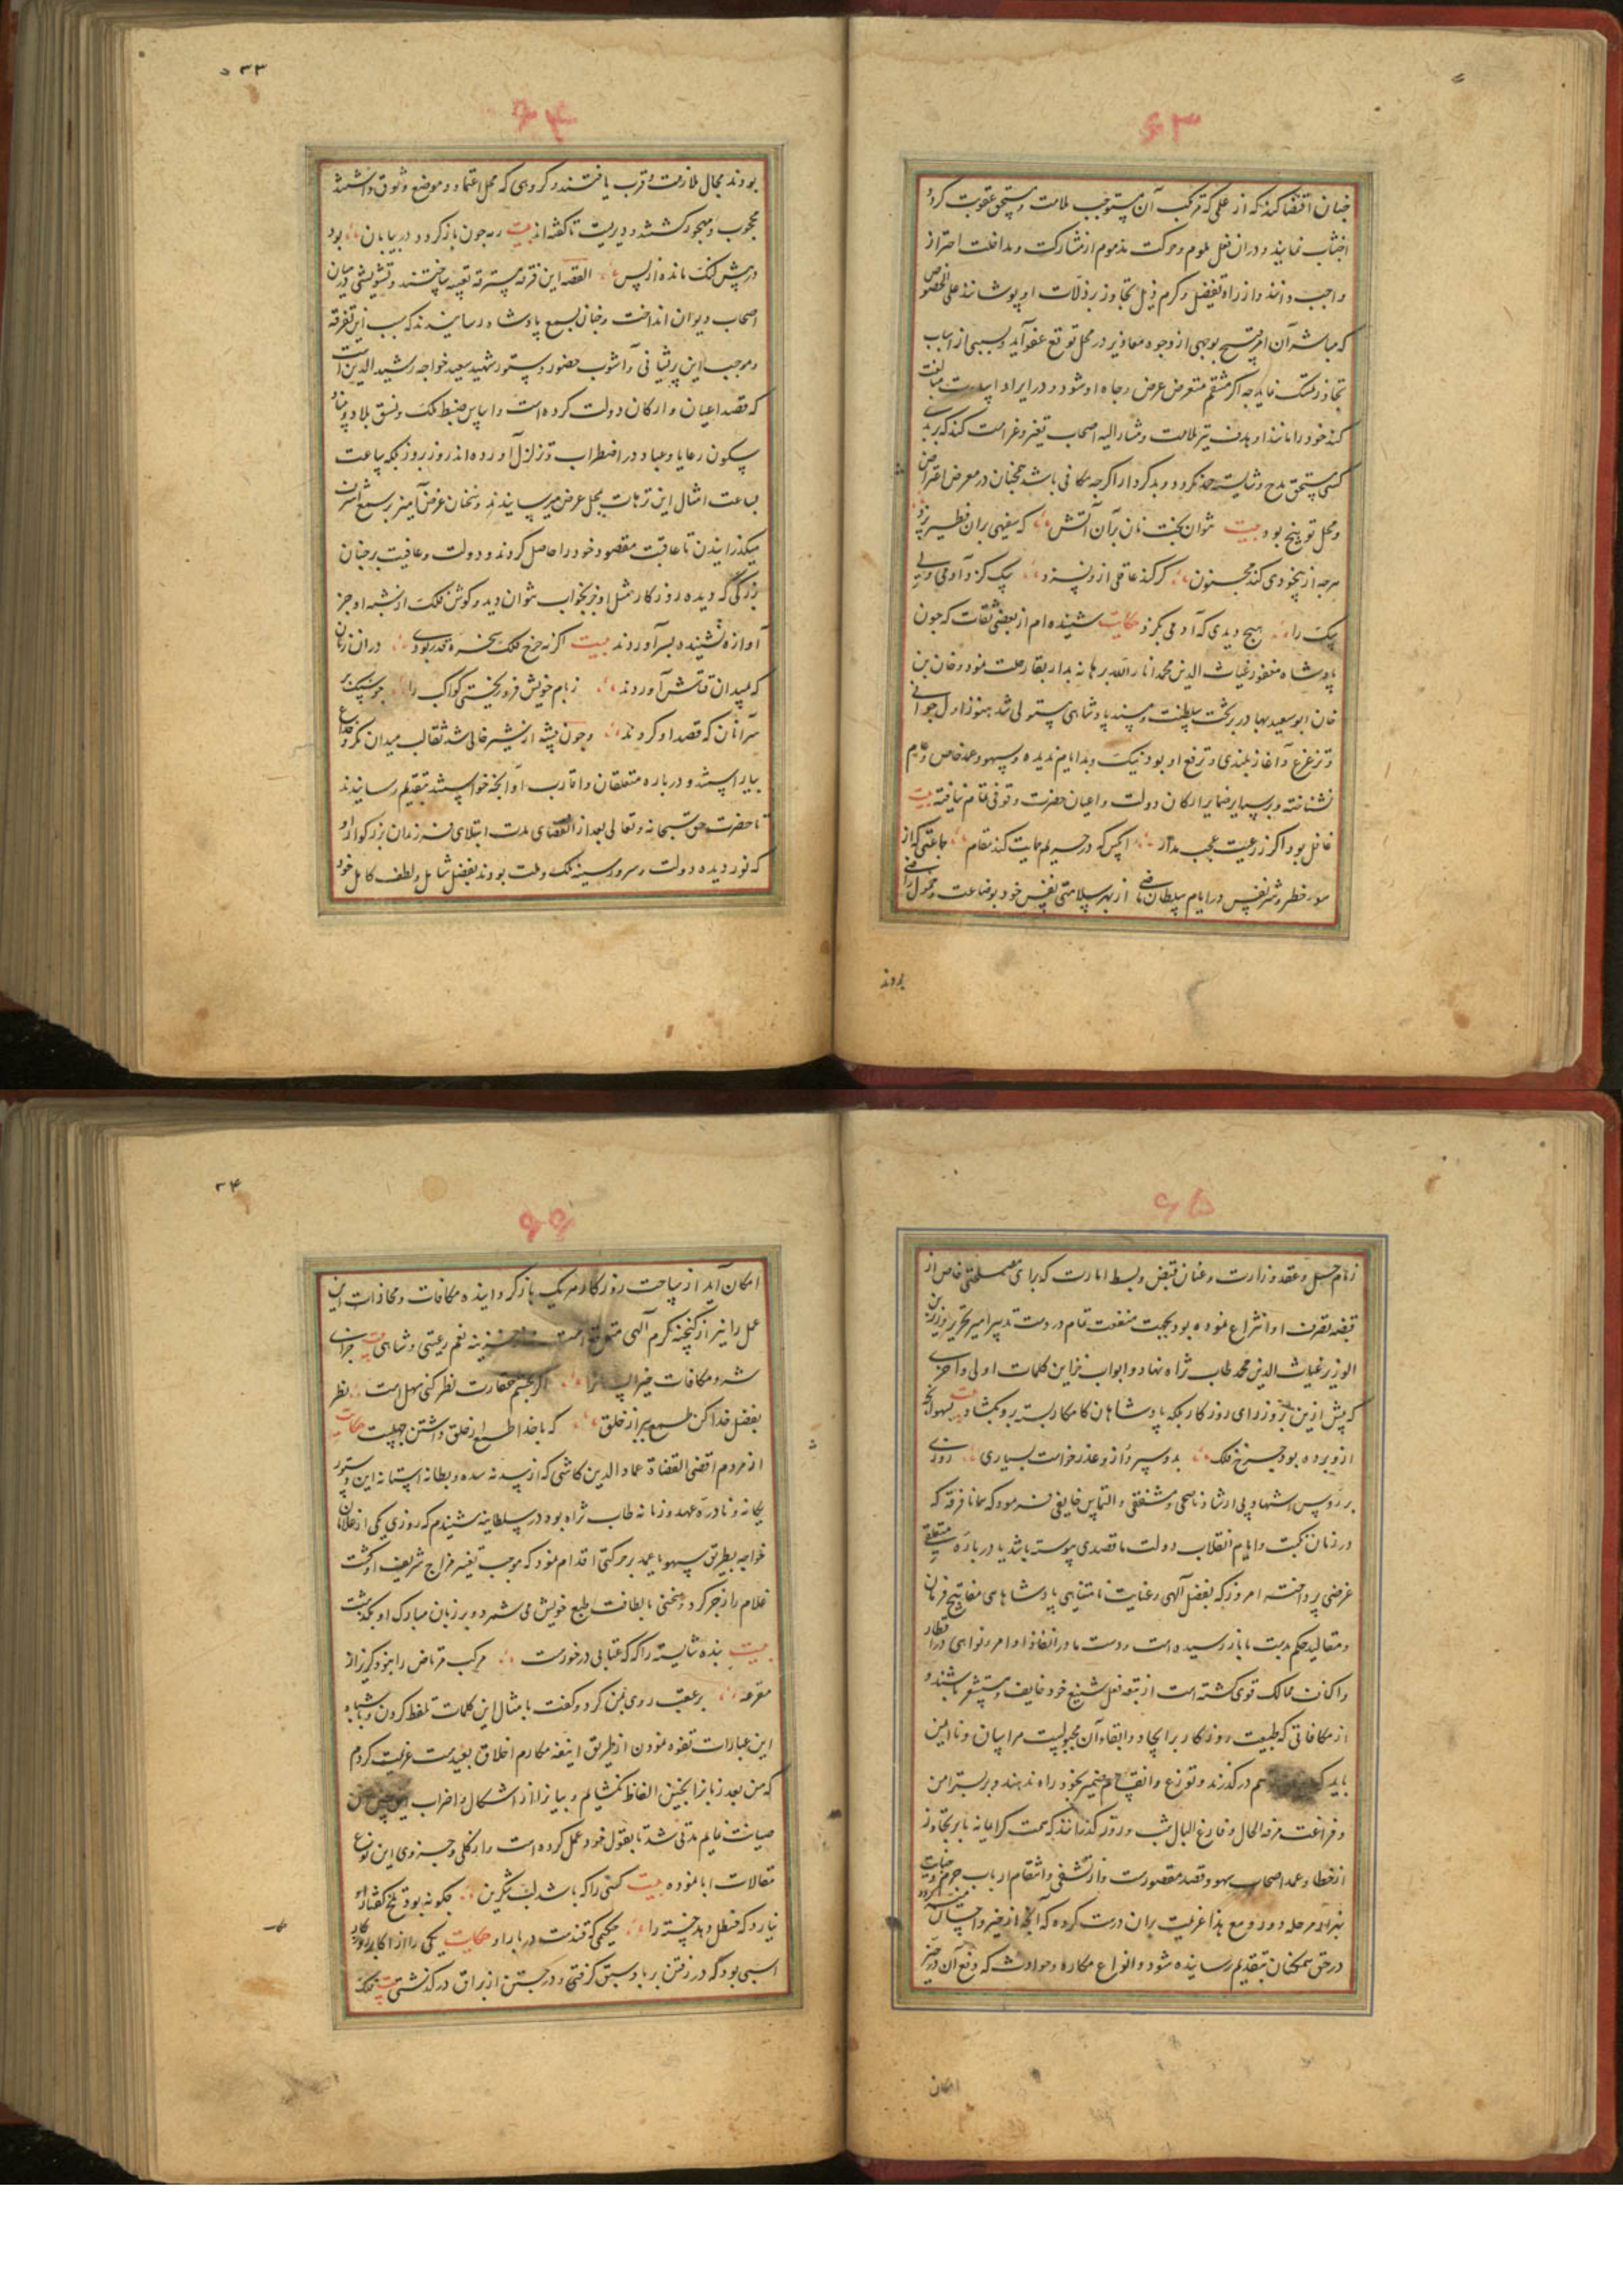 ۶۳
چنان اقتضا کند که از عملی که مرتکب آن مستوجب ملامت و مستحق عقوبت گردد
اجتناب نمایند و در آن فعل ملوم و حرکت مذموم از مشارکت و مداخلت احتراز
واجب دانند و از راه تفضل و کرم ذیل تجاوز بر زلات او پوشانند علی الخصوص
که مباشر آن امر قبیح بوجهی از وجوه معاذیر در محل توقع عفو آید و بسببی از اسباب
تجاوز تمسک نماید چه اگر منتقم متعرض عرض و جاه او شود و در ایراد مبالغت
کند خود را مانند او هدف تیر ملامت و مشار الیه اصحاب تعییر و غرامت کند که بر بد
کسی مستحق مدح و شایسته حمد نگردد و بد کردار اگر چه مکافی باشد همچنان در معرض اعتراض
و محل توبیخ بود بیت نتوان پخت نان بر آن آتش که سفیهی بر آن فطیر پزد
هرچه از بیخودی کند مجنون گر کند عاقلی ازو نسزد سگ گزد آدمی ولی
سگ را هیچ دیدی که آدمی بگزد حکایت شنیده ام از بعضی ثقات که چون
پادشاه مغفور غیاث الدین محمد انار الله برهانه بدار بقا رحلت نمود و خان بن
خان ابو سعید بهادر بر تخت سلطنت و مسند پادشاهی مستولی شد هنوز اول جوانی
و ترعرع و آغاز بلندی و ترفع او بود نیک و بد ایام ندیده و سهو و عمد خاص و عام
نشناخته و بر سرایر ضمایر ارکان دولت و اعیان حضرت وقوفی تمام نیافته بیت
غافل بود اگر ز رعیت عجب مدار آنکس که در حریم حمایت کند مقام جماعتی که از
مور خطر و شر نفس در ایام سلطان ماضی از بهر سلامتی نفس خود بوضاعت و خمول راضی
بودند
۳۳
۶۴
بودند مجال ملازمت و قرب یافتند و گروهی که محل اعتماد و موضع وثوق داشتند
محجوب و مهجور گشتند و دیریست تا گفته اند بیت رمه چون باز گردد در بیابان بود
در پیش لنگ مانده از پس القصه این فرقه مسترقه تعبیه ساختند و تشویشی در میان
اصحاب دیوان انداخت و چنان بسمع پادشاه رسانیدند که سبب این تفرقه
و موجب این پریشانی و آشوب حضور دستور شهید سعید خواجه رشید الدین است
که قصد اعیان و ارکان دولت کرده است و اساس ضبط ملک و نسق بلاد و بناء
سکون رعایا و عباد در اضطراب و تزلزل آورده اند روز بروز بلکه ساعت
بساعت امثال این ترهات بمحل عرض میرسانیدند و سخنان غرض آمیز بر سمع اشرف
میگذرانیدن تا عاقبت مقصود خود را حاصل کردند و دولت و عافیت بر چنان
بزرگی که دیده روزگار مثل او جز بخواب نتوان دید و گوش فلک از شبه او جز
آوازه نشنیده بسر آوردند بیت اگر نه چرخ فلک سخره قدر بودی در آن زمان
که بمیدان قتالش آوردند زمام خویش فرو ریختی کواکب را چو سنگ بر
سر آنان که قصد او کردند و چون بیشه از شیر خالی شد ثعالب میدان مکر و خداع
بیاراستند و در باره متعلقان و اقارب او آنچه خواستند بتقدیم رسانیدند
تا حضرت حق سبحانه و تعالی بعد از انقضای مدت ابتلای فرزندان بزرگوار او
که نور دیده دولت و سرور سینه ملک و ملت بودند بفضل شامل و لطف کامل خود
۶۵
زمام حل و عقد وزارت و عنان قبض و بسط امارت که برای مصلحتی خاص از
قبضه تصرف او انتزاع نموده بود بجهت منفعت تمام در دست تدبیر امیر تحریر وزیر بن
الوزیر غیاث الدین محمد طاب ثراه نهاد و ابواب خزاین کلمات اولی و اخری
که پیش ازین بر وزرای روزگار بلکه پادشاهان کامکار بسته برو بگشاد بیت بسهو آنچه
ازو برده بود چرخ فلک بدو سپرد و ازو عذر خواست بسیاری روزی
بر رؤس اشهاد بی ارشاد ناصحی و مشفقی و التماس خایفی فرمود که همانا فرقه که
در زمان نکبت و ایام انقلاب دولت ما قصدی پیوسته باشد یا در باره متعلقی
غرضی پرداخته امروز که بفضل الهی و عنایت نامتناهی پادشاهی مفاتیح فرمان
و مقالید حکم بدست ما باز رسیده است و دست ما در انفاذ اوامر و نواهی در اقطار
و اکناف ممالک قوی گشته است از تبعه فعل شنیع خود خایف و مستشعر باشند و
از مکافاتی که طبیعت روزگار بر ایجاد و ابقاء آن مجبولست هراسان و ناایمن
باید که درگذرند و توزع و انقسام ضمیر بخود راه ندهند و بر بستر امن
و فراغت مرفه الحال و فارغ البال شب و روز گذرانند که همت کرامانه ما بر تجاوز
از خطا و عمد اصحاب سهو و قصد مقصورست و از تشفی و انتقام ارباب جرم و خیانت
بمراحل دور و مع هذا عزیمت بران درست کرده که آنچه از خیر و احسان
در حق همگنان بتقدیم رسانیده شود و انواع مکاره و حوادث که دفع آن در حیز
امکان
۳۴
۶۶
امکان آید از ساحت روزگار هر یک باز گردانیده مکافات و مجازات این
عمل را نیز از گنجینه کرم الهی متوقع است نعم رعیتی و شاهی بیت جزای
شر و مکافات خیر اگر بچشم حقارت نظر کنی سهل است نظر
بفضل خدا کن طمع ببر از خلق که با خدا طمع از خلق داشتن جهلست حکایت
از مردم اقضی القضاة عماد الدین کاشی که از سدنه سده و بطانه آستانه این دستور
یگانه و نادره عهد و زمانه طاب ثراه بود در سلطانیه شنیدم که روزی یکی از غلامان
خواجه بطریق سهو یا عمد بر حرکتی اقدام نمود که موجب تغییر مزاج شریف او گشت
غلام را زجر کرد و سخنی با لطافت طبع خویش می شمرد و بر زبان مبارک او بگذشت
بیت بنده شایسته را که عتابی درخورست مرکب مرتاض را نبود گریز از
مقرعه بر عقب روی بمن کرد و گفت بامثال این کلمات تلفظ کردن و باشباه
این عبارات تفوه نمودن از طریق ائمه مکارم اخلاق بعیدست عزیمت کردم
که من بعد زبانرا بچنین الفاظ نگشایم و بیانرا از اشکال و اضراب این چنین سخن
صیانت نمایم مدتی شد تا بقول خود عمل کرده است و از کلی و جزوی این نوع
مقالات ابا نموده بیت کسی را که باشد لب شکرین چگونه بود تلخ گفتار او
نیارد که حنظل دهد خسته را حکیمی که قندست در بار او حکایت یکی را از اکابر روزگار
اسبی بود که در رفتن بر باد سبق گرفتی و در جستن از براق در گذشتی بیت